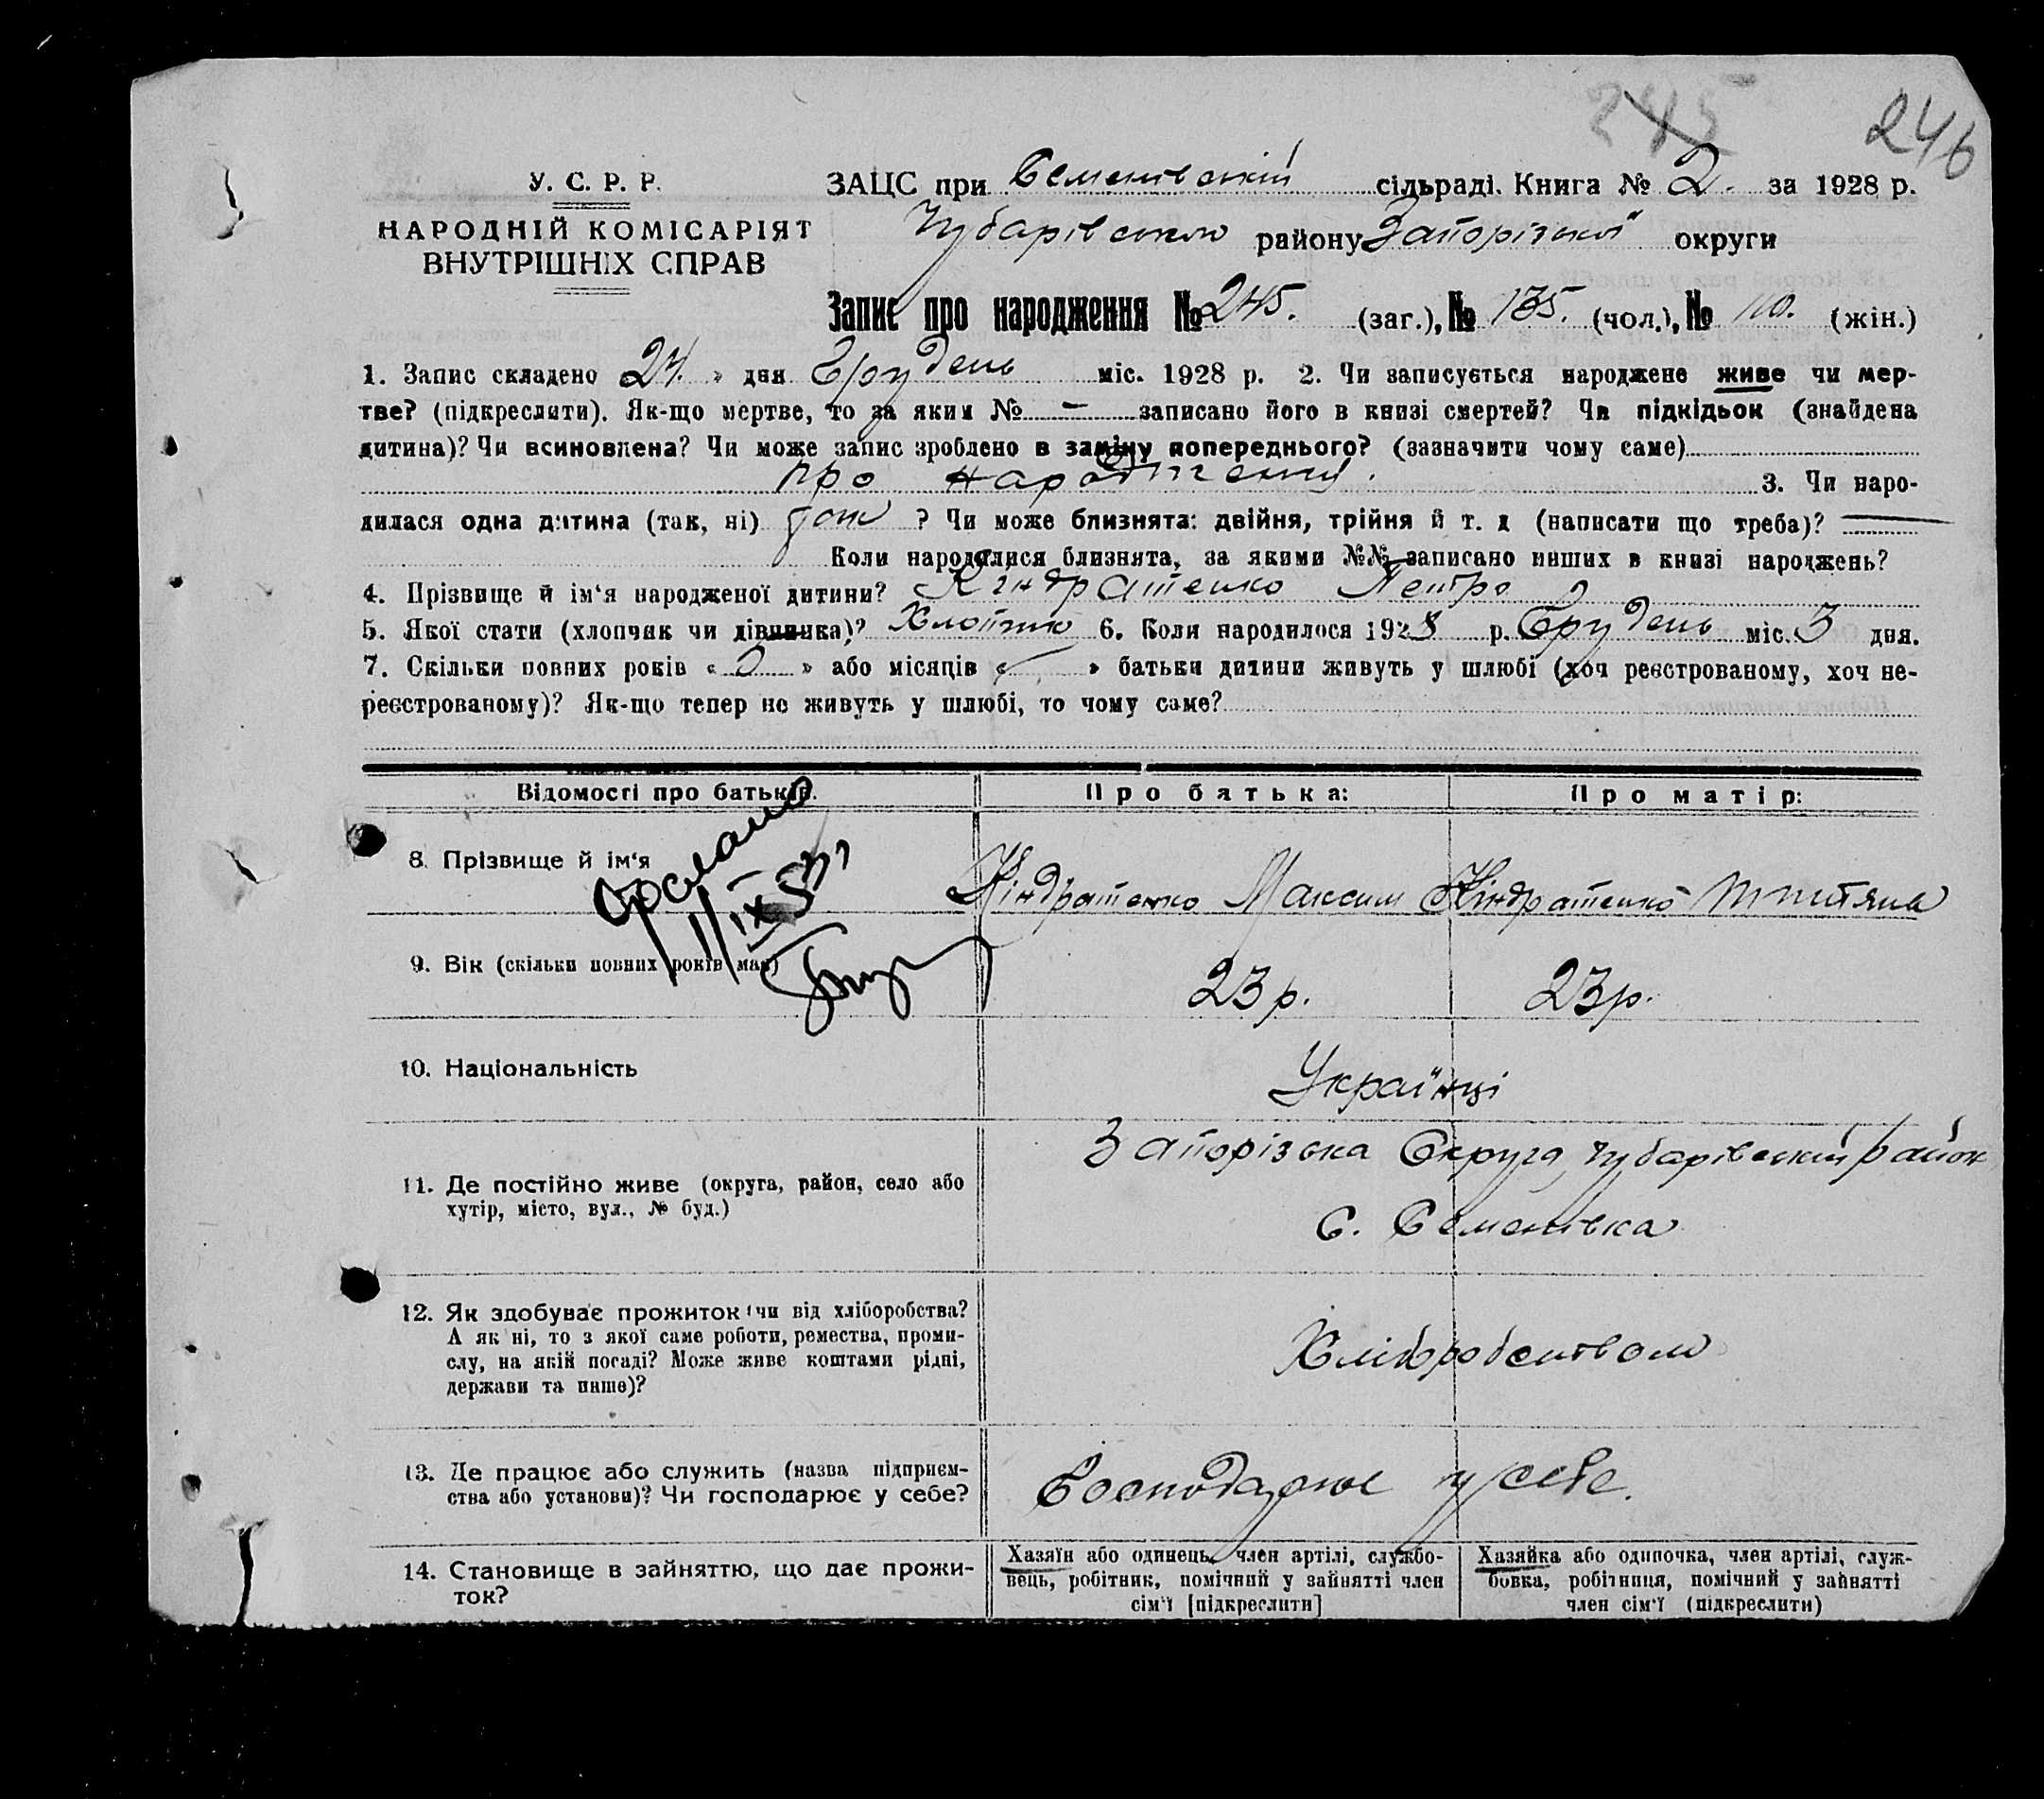 245 246
У. С. Р. Р.
НАРОДНІЙ КОМІСАРІЯТ
ВНУТРІШНІХ СПРАВ
ЗАЦС при Семенівській сільраді. Книга № 2. за 1928 р.
Чубарівського району Запорізької округи
Запис про народження № 245. (заг.), № 135. (чол.), № 110. (жін.)
1. Запис складено 24. » дня Грудень міс. 1928 р. 2. Чи записується народжене живе чи мер-
тве? (підкреслити). Як-що мертве, то за яким № — записано його в книзі смертей? Чи підкідьок (знайдена
дитина)? Чи всиновлена? Чи може запис зроблено в заміну попереднього? (зазначити чому саме)
про народження. 3. Чи наро-
дилася одна дитина (так, ні) ? Чи може близнята: двійня, трійня й т. д (написати що треба)? —
Коли народилися близнята, за якими №№ записано инших в книзі народжень?
4. Прізвище й ім'я народженої дитини? Кіндратенко Петро
5. Якої стати (хлопчик чи дівчинка)? Хлопчик 6. Коли народилося 1928 р. Грудень міс. 3 дня.
7. Скільки повних років « 2 » або місяців « — » батьки дитини живуть у шлюбі (хоч реєстрованому, хоч не-
реєстрованому)? Як-що тепер не живуть у шлюбі, то чому саме?
Відомості про батьків. Про батька: Про матір:
8. Прізвище й ім'я Кіндратенко Максим Кіндратенко Титяна
9. Вік (скільки повних років має) 23 р. 23 р.
10. Національність Українці
11. Де постійно живе (округа, район, село або
хутір, місто, вул., № буд.)
Запорізька Округа, Чубарівський район
С. Семенівка
12. Як здобуває прожиток (чи від хліборобства?
А як ні, то з якої саме роботи, ремества, проми-
слу, на якій посаді? Може живе коштами рідні,
держави та инше)?
Хліборобством
13. Де працює або служить (назва підприєм-
ства або установи)? Чи господарює у себе?
Господарює у себе.
14. Становище в зайняттю, що дає прожи-
ток?
Хазяїн або одинець, член артілі, службо-
вець, робітник, помічний у зайнятті член
сім'ї [підкреслити]
Хазяйка або одиночка, член артілі, служ-
бовка, робітниця, помічний у зайнятті
член сім'ї (підкреслити)